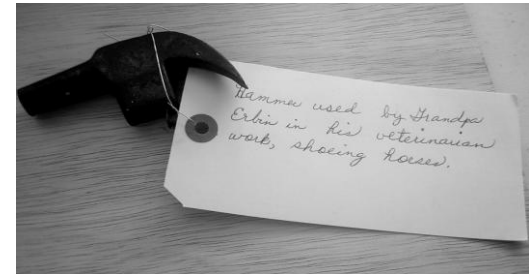 Hammer used by Grandpa
Erbin in his veterinarian
work, shoeing horses.